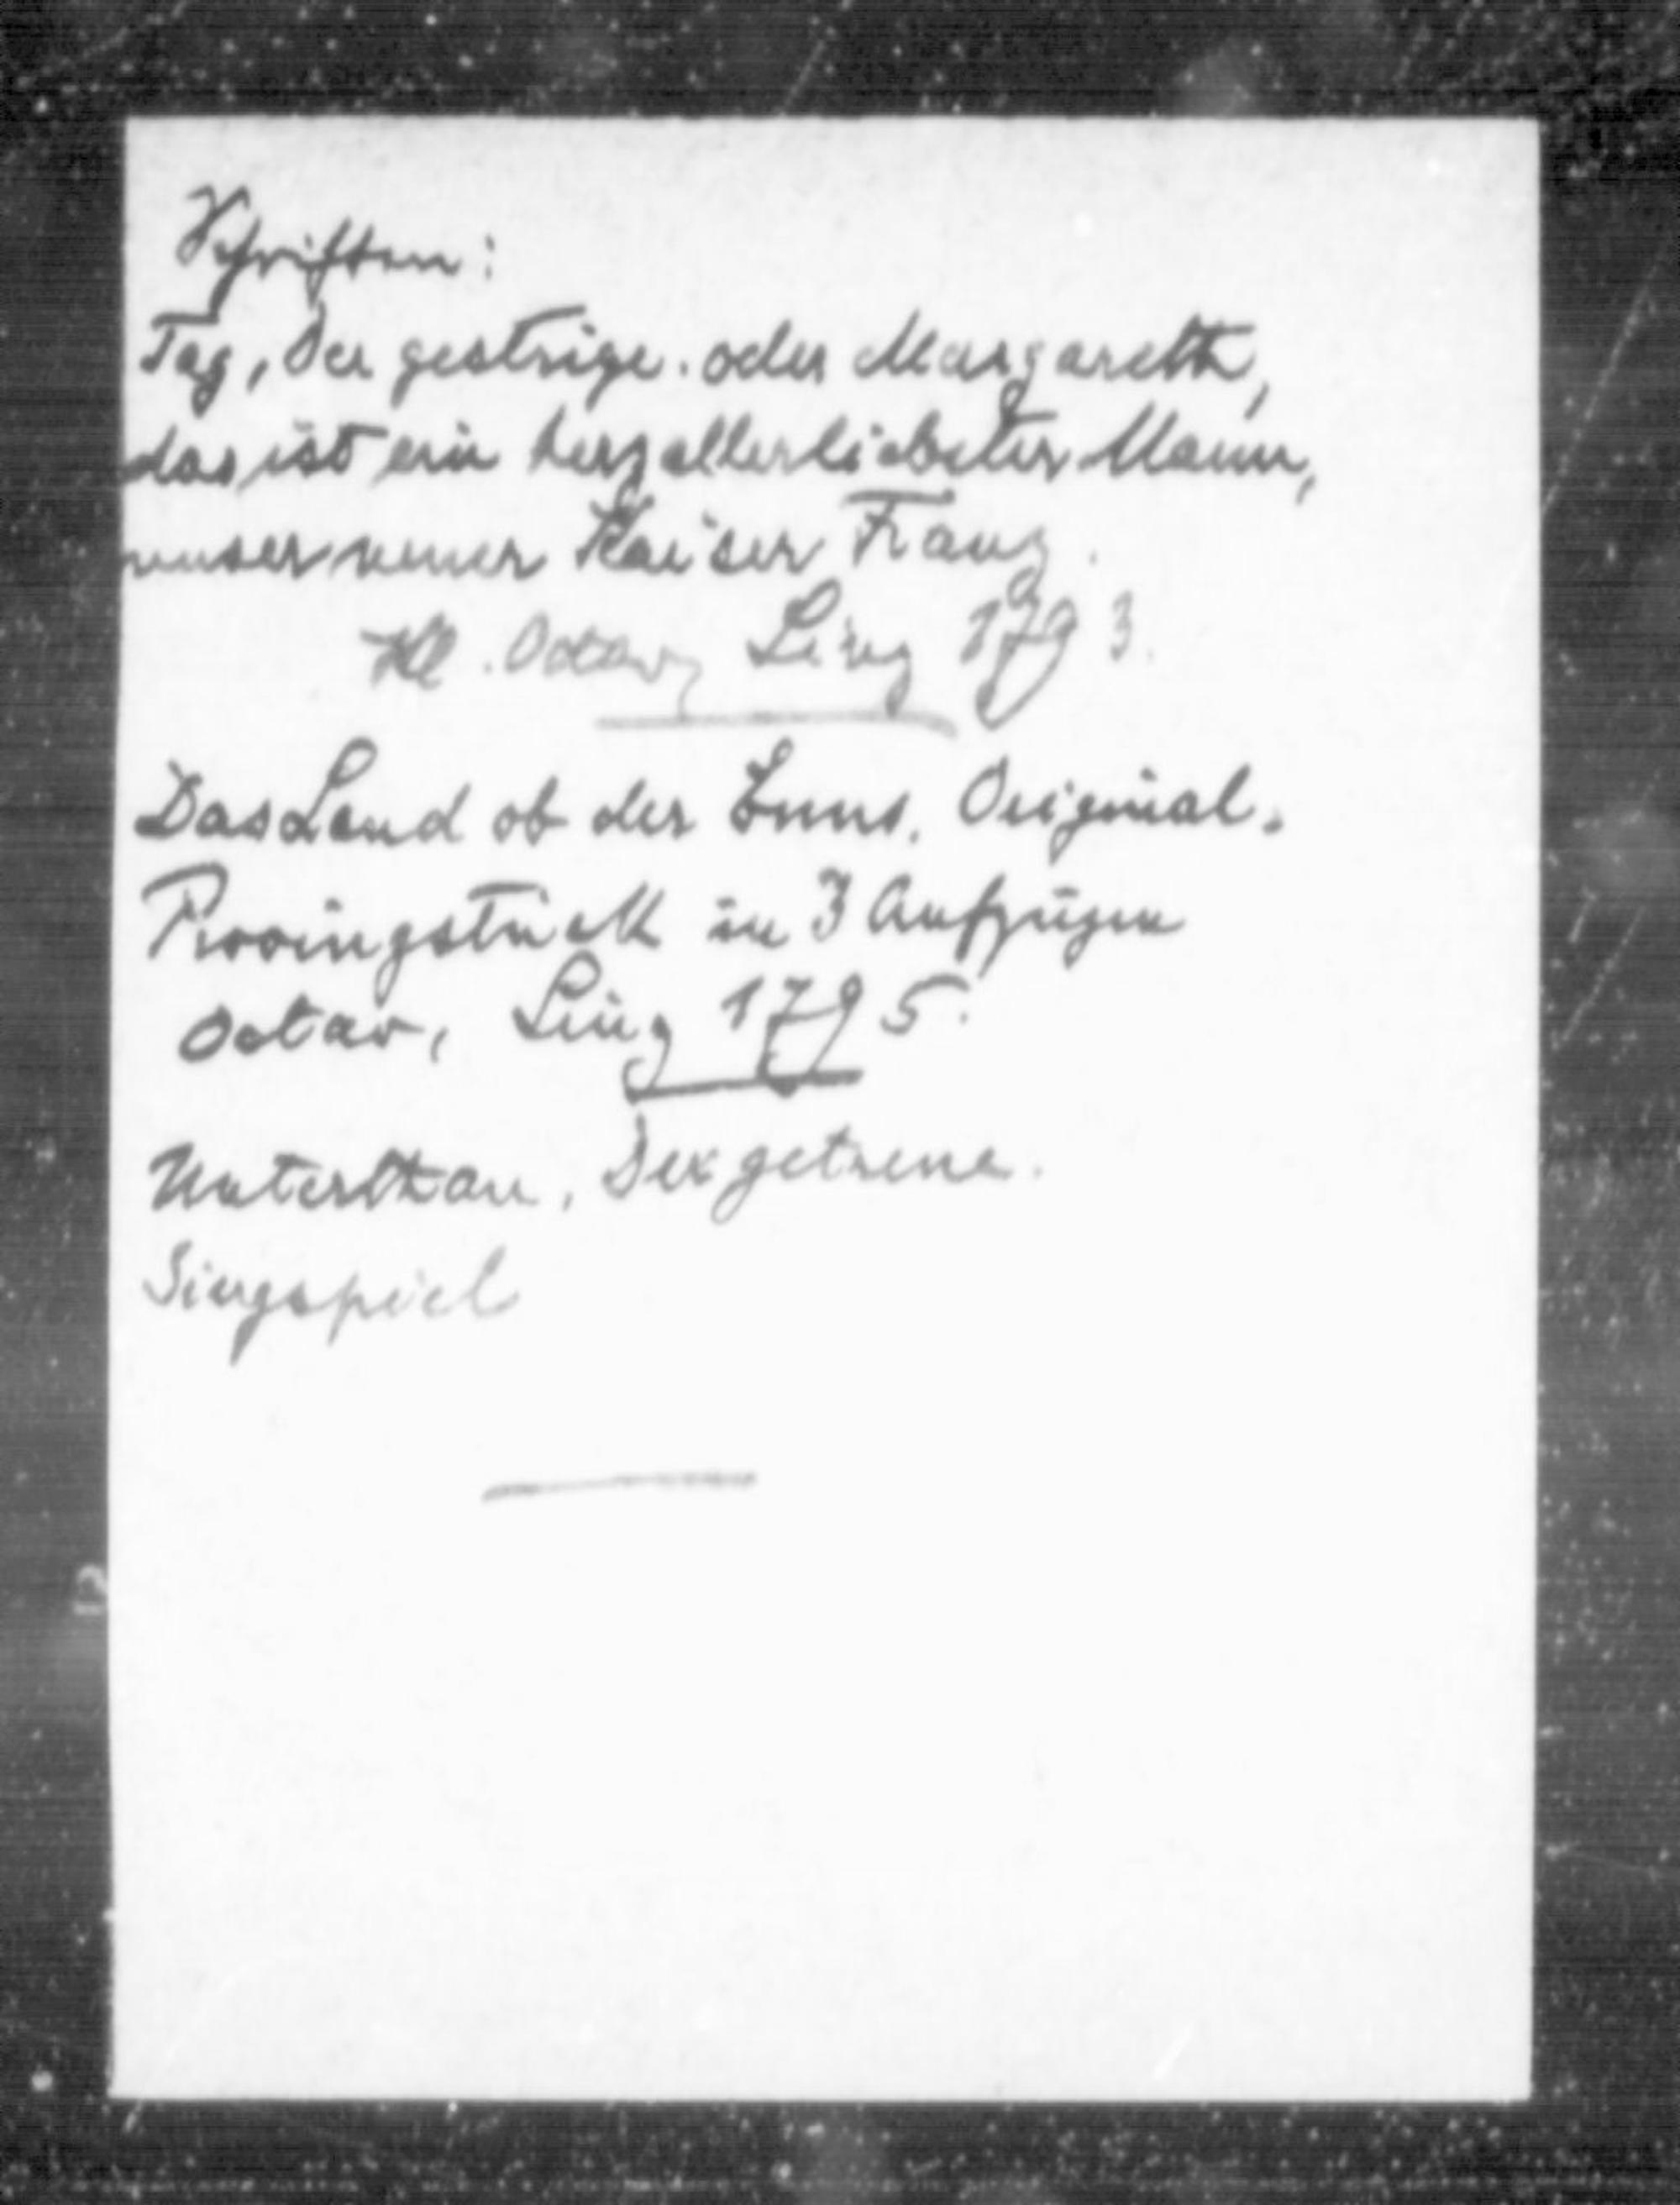 Schriften:
Tag, der gestrige. oder Margareth,
das ist ein herzallerliebster Mann,
unser neuer Kaiser Franz.
Kl. Octav, Linz 1793.
Das Land ob der Enns. Original-
Provinzstück in 3 Aufzügen
Octav, Linz 1795.
Unterthan, Der getreue.
Singspiel
12